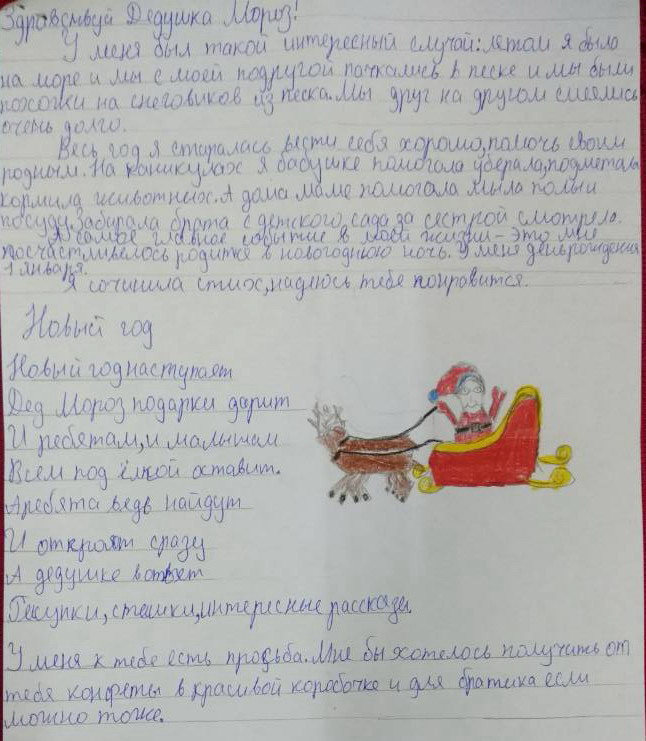 Здравствуй Дедушка Мороз!
У меня был такой интересный случай: летом я была
на море и мы с моей подругой пачкались в песке и мы были
похожи на снеговиков из песка. Мы друг на другом смеялись
очень долго.
Весь год я старалась вести себя хорошо, помочь своим
родным. На каникулах я бабушке помогала уберала, подметала
кормила животных. А дома маме помогала мыла полы и
посуду. Забирала брата с детского сада, за сестрой смотрела.
А самое главное событие в моей жизни - это мне
посчастливелось родится в новогоднюю ночь. У меня день рождения
1 января.
Я сочинила стих, надеюсь тебе понравится.
Новый год
Новый год наступает
Дед Мороз подарки дарит
И ребятам, и малышам
Всем под ёлкой оставит.
А ребята ведь найдут
И откроят сразу
А дедушке в ответ
Рисунки, стешки, интересные рассказы.
У меня к тебе есть просьба. Мне бы хотелось получить от
тебя конфеты в красивой коробочке и для братика если
можно тоже.